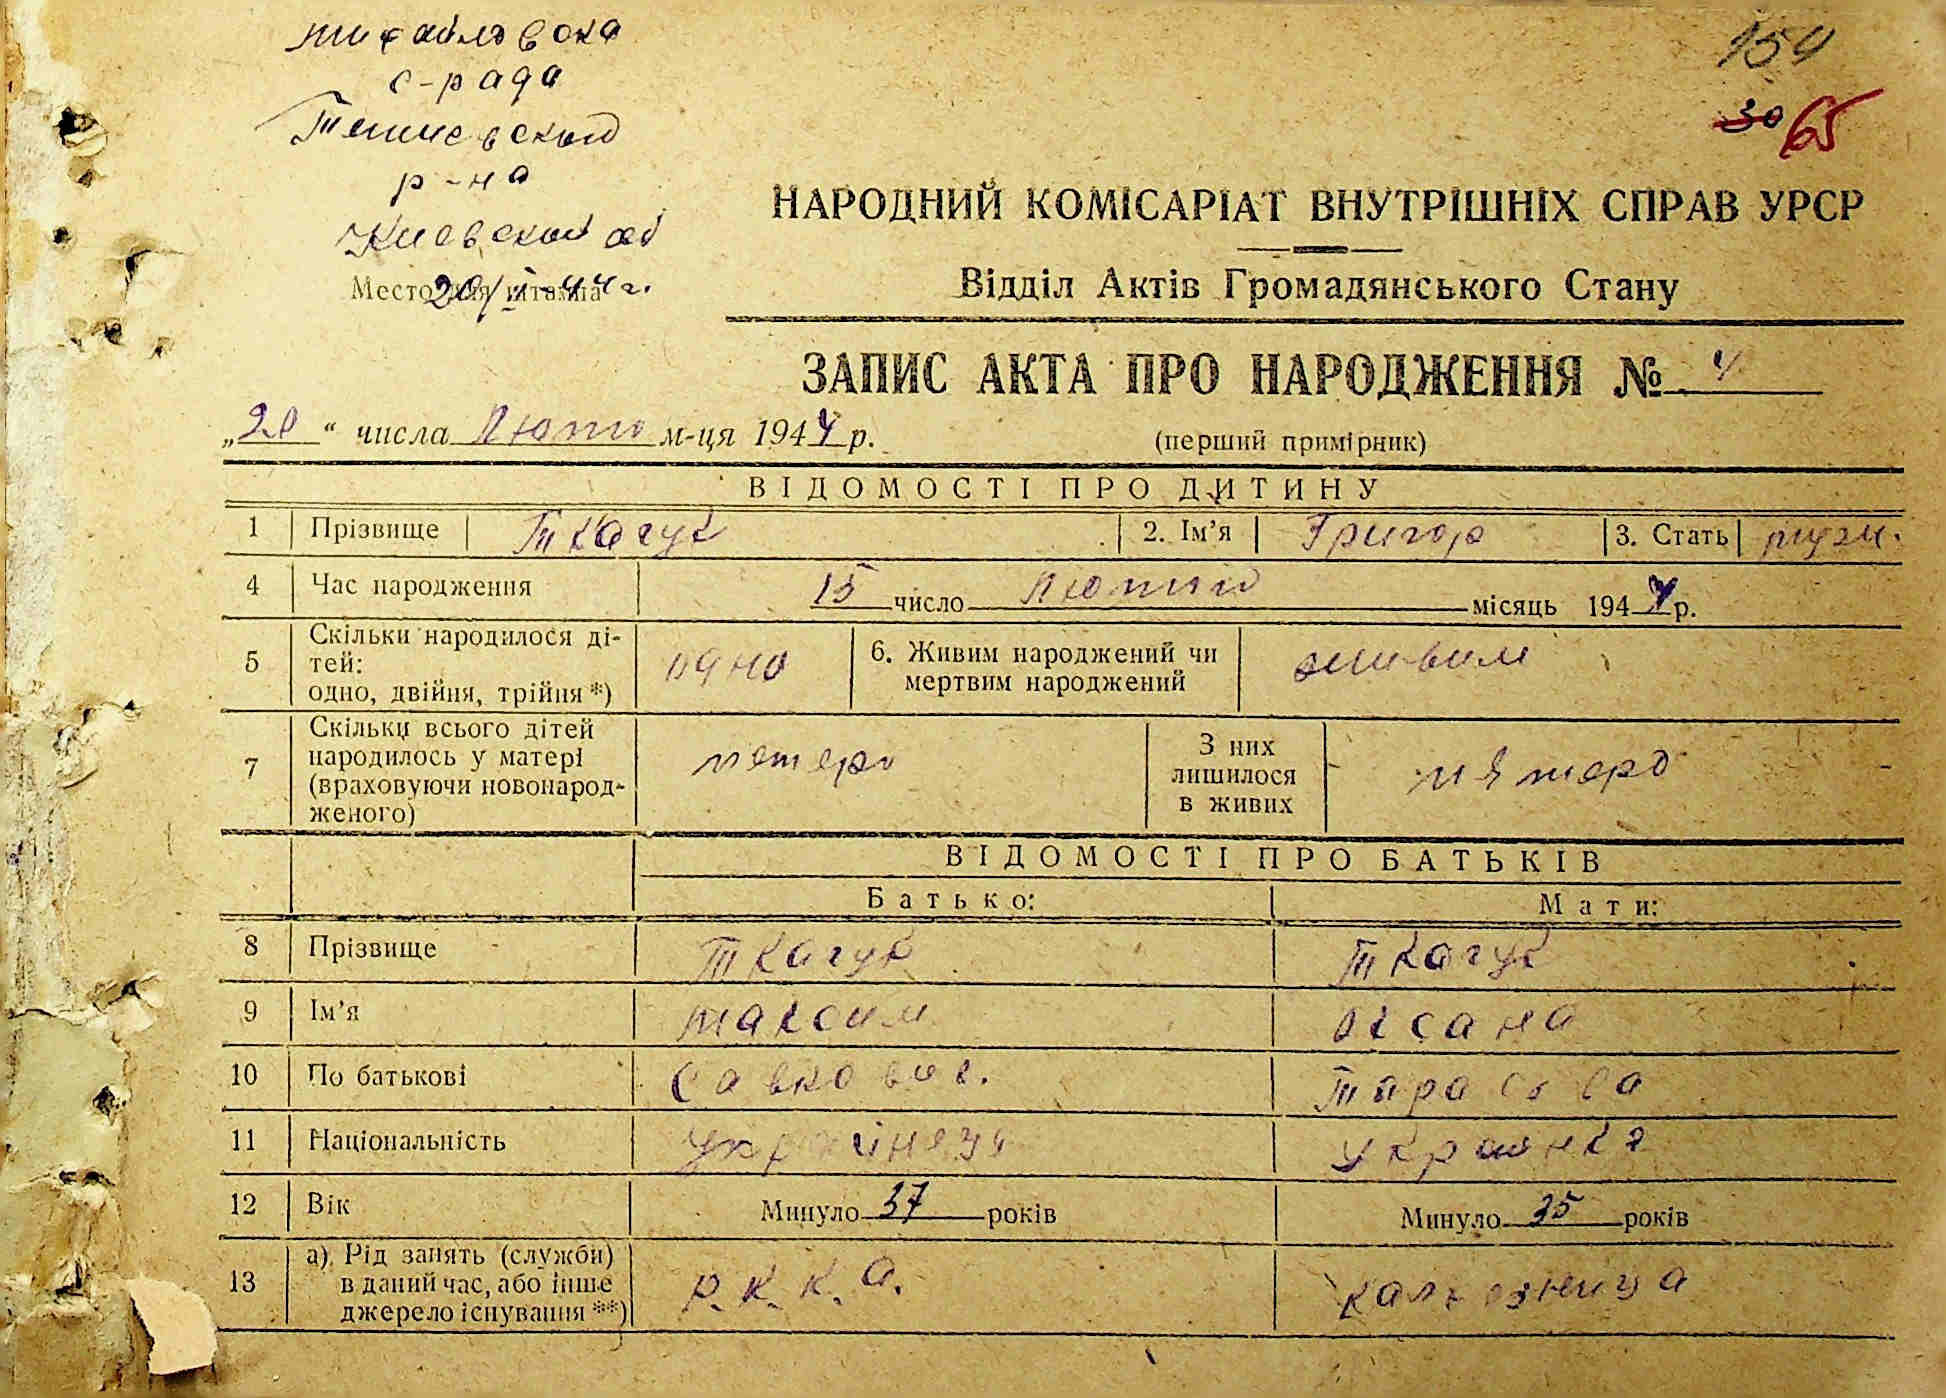 Михайловска
с-рада
р-на
Киевской об
20/II-44 г.
Место для штампа
154
30 65
НАРОДНИЙ КОМІСАРІАТ ВНУТРІШНІХ СПРАВ УРСР
Відділ Актів Громадянського Стану
ЗАПИС АКТА ПРО НАРОДЖЕННЯ № 4
„20“ числа Лютого м-ця 1944 р.
(перший примірник)
ВІДОМОСТІ ПРО ДИТИНУ
1 Прізвище Ткачук 2. Ім'я Григор 3. Стать муж.
4 Час народження 15 число Лютий місяць 1944 р.
5 Скільки народилося ді-
тей:
одно, двійня, трійня *) одно 6. Живим народжений чи
мертвим народжений живим
7 Скільки всього дітей
народилось у матері
(враховуючи новонарод-
женого) петеро З них
лишилося
в живих пятеро
ВІДОМОСТІ ПРО БАТЬКІВ
Батько: Мати:
8 Прізвище Ткачук Ткачук
9 Ім'я Максим Оксана
10 По батькові Савков. Тарасова
11 Національність Українець Украинка
12 Вік Минуло 37 років Минуло 35 років
13 а) Рід занять (служби)
в даний час, або інше
джерело існування **) Р.К.К.А. Калхозница